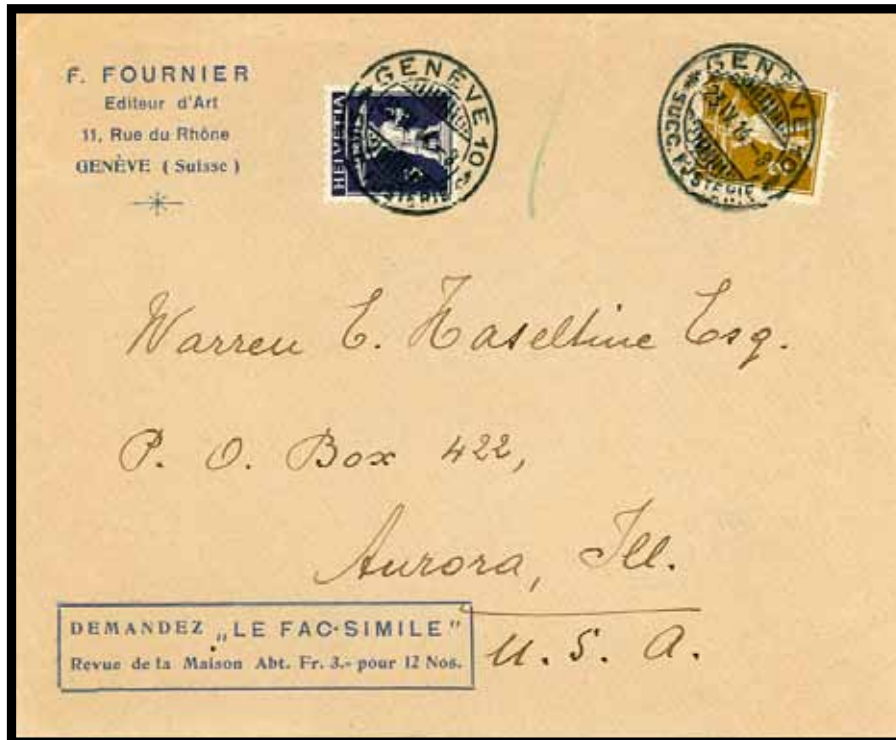 F. FOURNIER
Editeur d'Art
11, Rue du Rhône
GENÈVE (Suisse)
HELVETIA
GENÈVE 10
GENÈVE 10
SUCC.
Warren E. Haseltine Esq.
P. O. Box 422,
Aurora, Ill.
U. S. A.
DEMANDEZ „LE FAC-SIMILE"
Revue de la Maison Abt. Fr. 3.- pour 12 Nos.